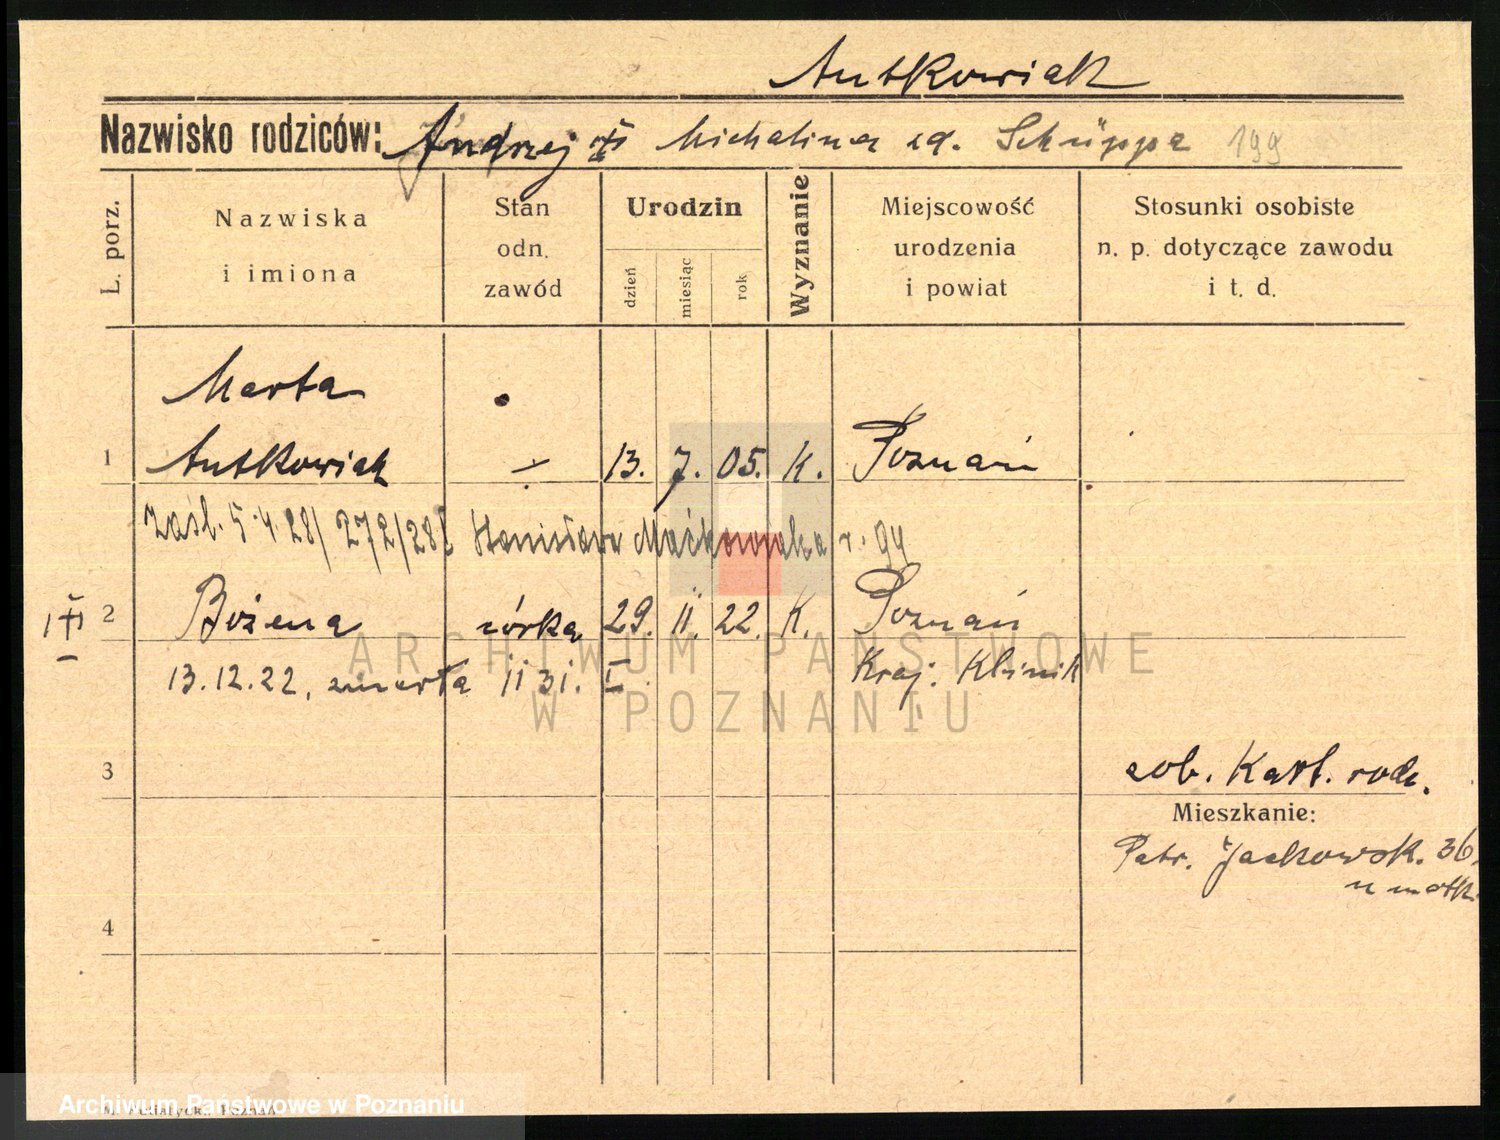 Antkowiak
Nazwisko rodziców: Andrzej Michalina zd. Schüppa 199
L. porz.
Nazwiska
i imiona
Stan
odn.
zawód
Urodzin
dzień
miesiąc
rok
Wyznanie
Miejscowość
urodzenia
i powiat
Stosunki osobiste
n. p. dotyczące zawodu
i t. d.
Marta
1 Antkowiak 13. 7. 05. K. Poznań
zaśl. 5.4.28/ 272/28 Stanisława Maćkowiaka r. 99
2 Bożena córka 29. 11. 22. K. Poznań
13.12.22, zmarła II 31. I Kraj. Klinik
ARCHIWUM PAŃSTWOWE
W POZNANIU
3 zob. Kart. rodz.
Mieszkanie:
Patr. Jackowsk. 36.
u matk.
4
Archiwum Państwowe w Poznaniu